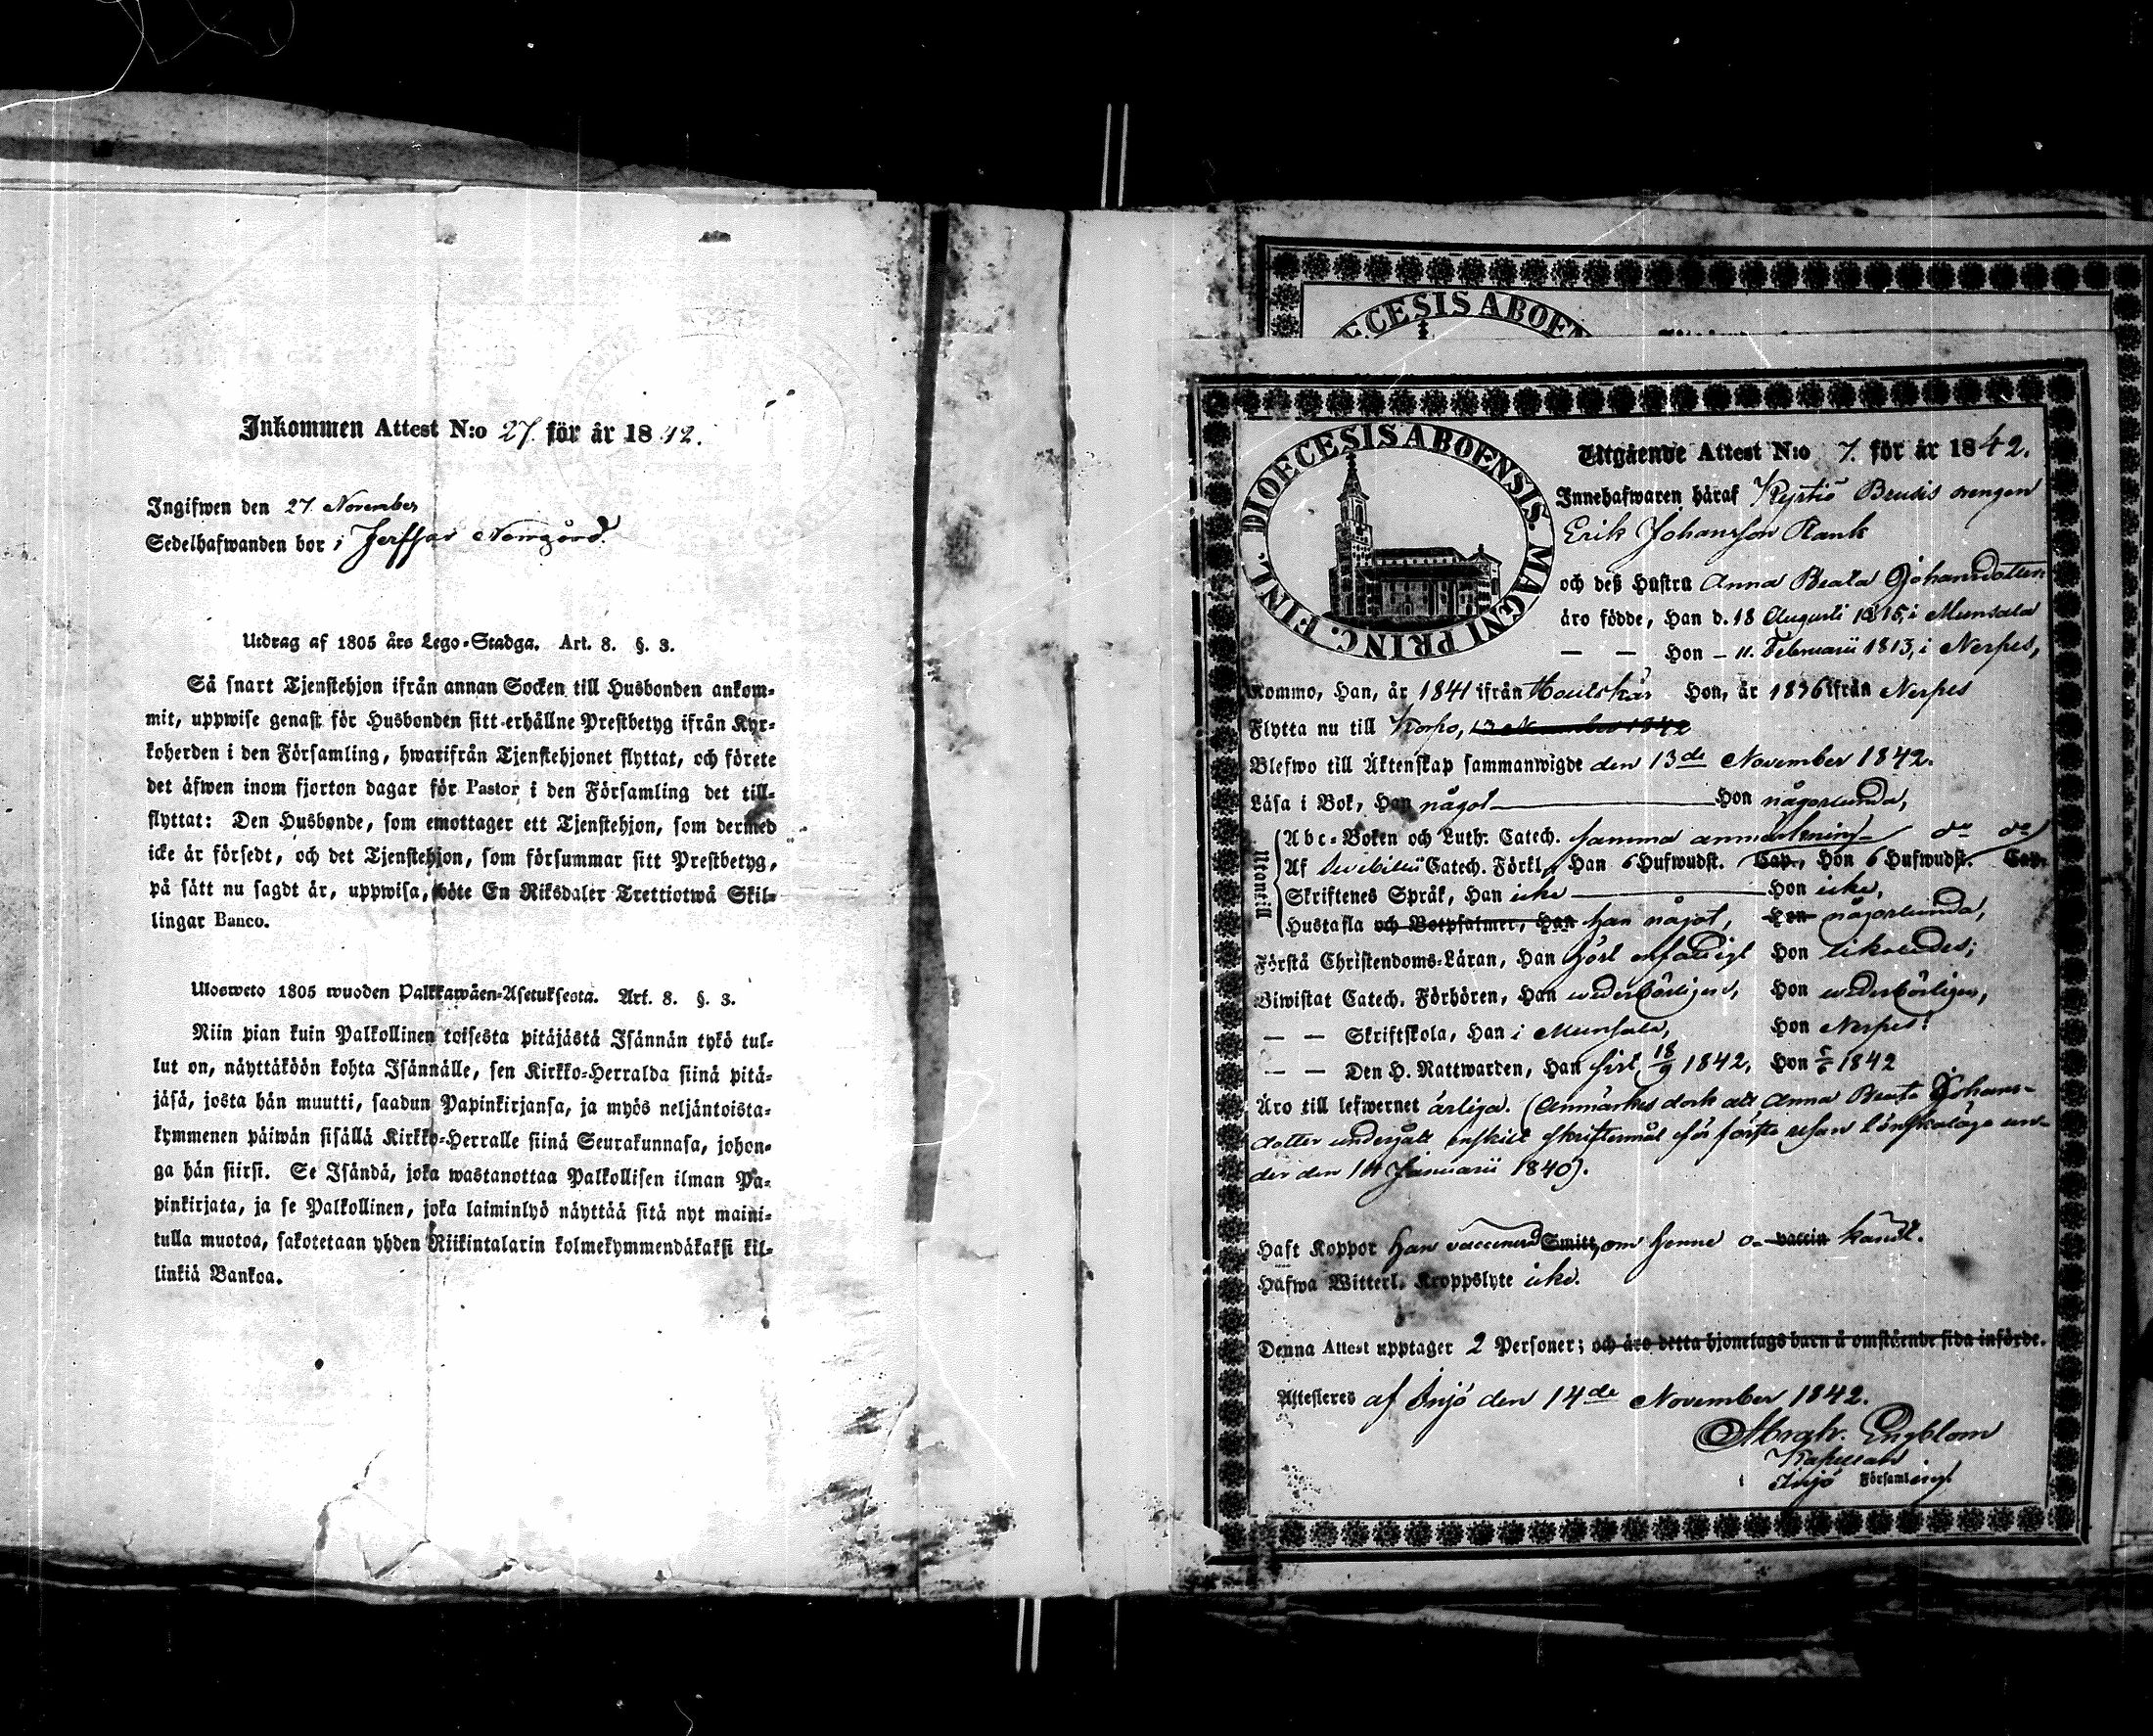 Inkommen Attest N:o 27. för år 1842.
Ingifwen den 27 November
Sedelhafwanden bor i
Utdrag af 1805 års Lego-Stadga. Art. 8. §. 3.
Så snart Tjenstehjon ifrån annan Socken till Husbonden ankom-
mit, uppwise genast för Husbonden sitt erhållne Prestbetyg ifrån Kyr-
koherden i den Församling, hwarifrån Tjenstehjonet flyttat, och förete
det äfwen inom fjorton dagar för Pastor i den Församling det till-
flyttat: Den Husbonde, som emottager ett Tjenstehjon, som dermed
icke är försedt, och det Tjenstehjon, som försummar sitt Prestbetyg,
på sätt nu sagdt är, uppwisa, böte En Riksdaler Trettiotwå Skil-
lingar Banco.
Ulosweto 1805 wuoden Palkkawäen-Asetuksesta. Art. 8. §. 3.
Niin pian kuin Palkollinen toisesta pitäjästä Isännän tykö tul-
lut on, näyttäköön kohta Isännälle, sen Kirkko-Herralda siinä pitä-
jäsä, josta hän muutti, saadun Papinkirjansa, ja myös neljäntoista-
kymmenen päiwän sisällä Kirkko-Herralle siinä Seurakunnasa, johon-
ga hän siirsi. Se Isändä, joka wastanottaa Palkollisen ilman Pa-
pinkirjata, ja se Palkollinen, joka laiminlyö näyttää sitä nyt maini-
tulla muotoa, sakotetaan yhden Riikintalarin kolmekymmendäkaksi kil-
linkiä Bankoa.
DIOECESIS ABOEN
FINL. DIOECESIS ABOENSIS. MAGNI PRINC.
Utgående Attest N:o 7. för år 1842.
Innehafwaren häraf Brusis drengen
Erik Johansson Rank
och deß Hustru Anna Beata Johansdotter
äro födde, Han d. 18 Augusti 1815, i Munsala
— — Hon — 11. Februarii 1813, i Nerpes,
Kommo, Han, år 1841 ifrån Houtskär Hon, år 1836 ifrån Nerpes
Flytta nu till Korpo, 13 November 1842
Blefwo till Äktenskap sammanwigde den 13de November 1842.
Läsa i Bok, Han något Hon någorlunda,
Utantill
Abc-Boken och Luth. Catech. samma anmärkning do do
Af Svebilii Catech. Förkl., Han 6 Hufwudst. Cap., Hon 6 Hufwudst. Cap.
Skriftenes Språk, Han icke Hon icke,
Hustafla och Botpsalmer, Han han något, Hon någorlunda,
Förstå Christendoms-Läran, Han högst enfaldigt Hon likaledes;
Biwistat Catech. Förhören, Han wederbörligen, Hon wederbörligen,
— — Skriftskola, Han i Munsala, Hon Nerpes:
— — Den H. Nattwarden, Han sist 18/9 1842, Hon 1842
Äro till lefwernet ärliga. (Anmärkes dock att Anna Beata Johans-
dotter undergått enskilt skriftermål för första resan lönskaläge un-
der den 14 Januarii 1840).
Haft Koppor Han vaccinerad Smitt, om henne o- vaccin kändt.
Hafwa Witterl. Kroppslyte icke.
Denna Attest upptager 2 Personer; och äro detta hjonelags barn å omstående sida införde.
Attesteres af Iniö den 14de November 1842.
Abrah. Engblom
Kapellan
i Iniö Församling.